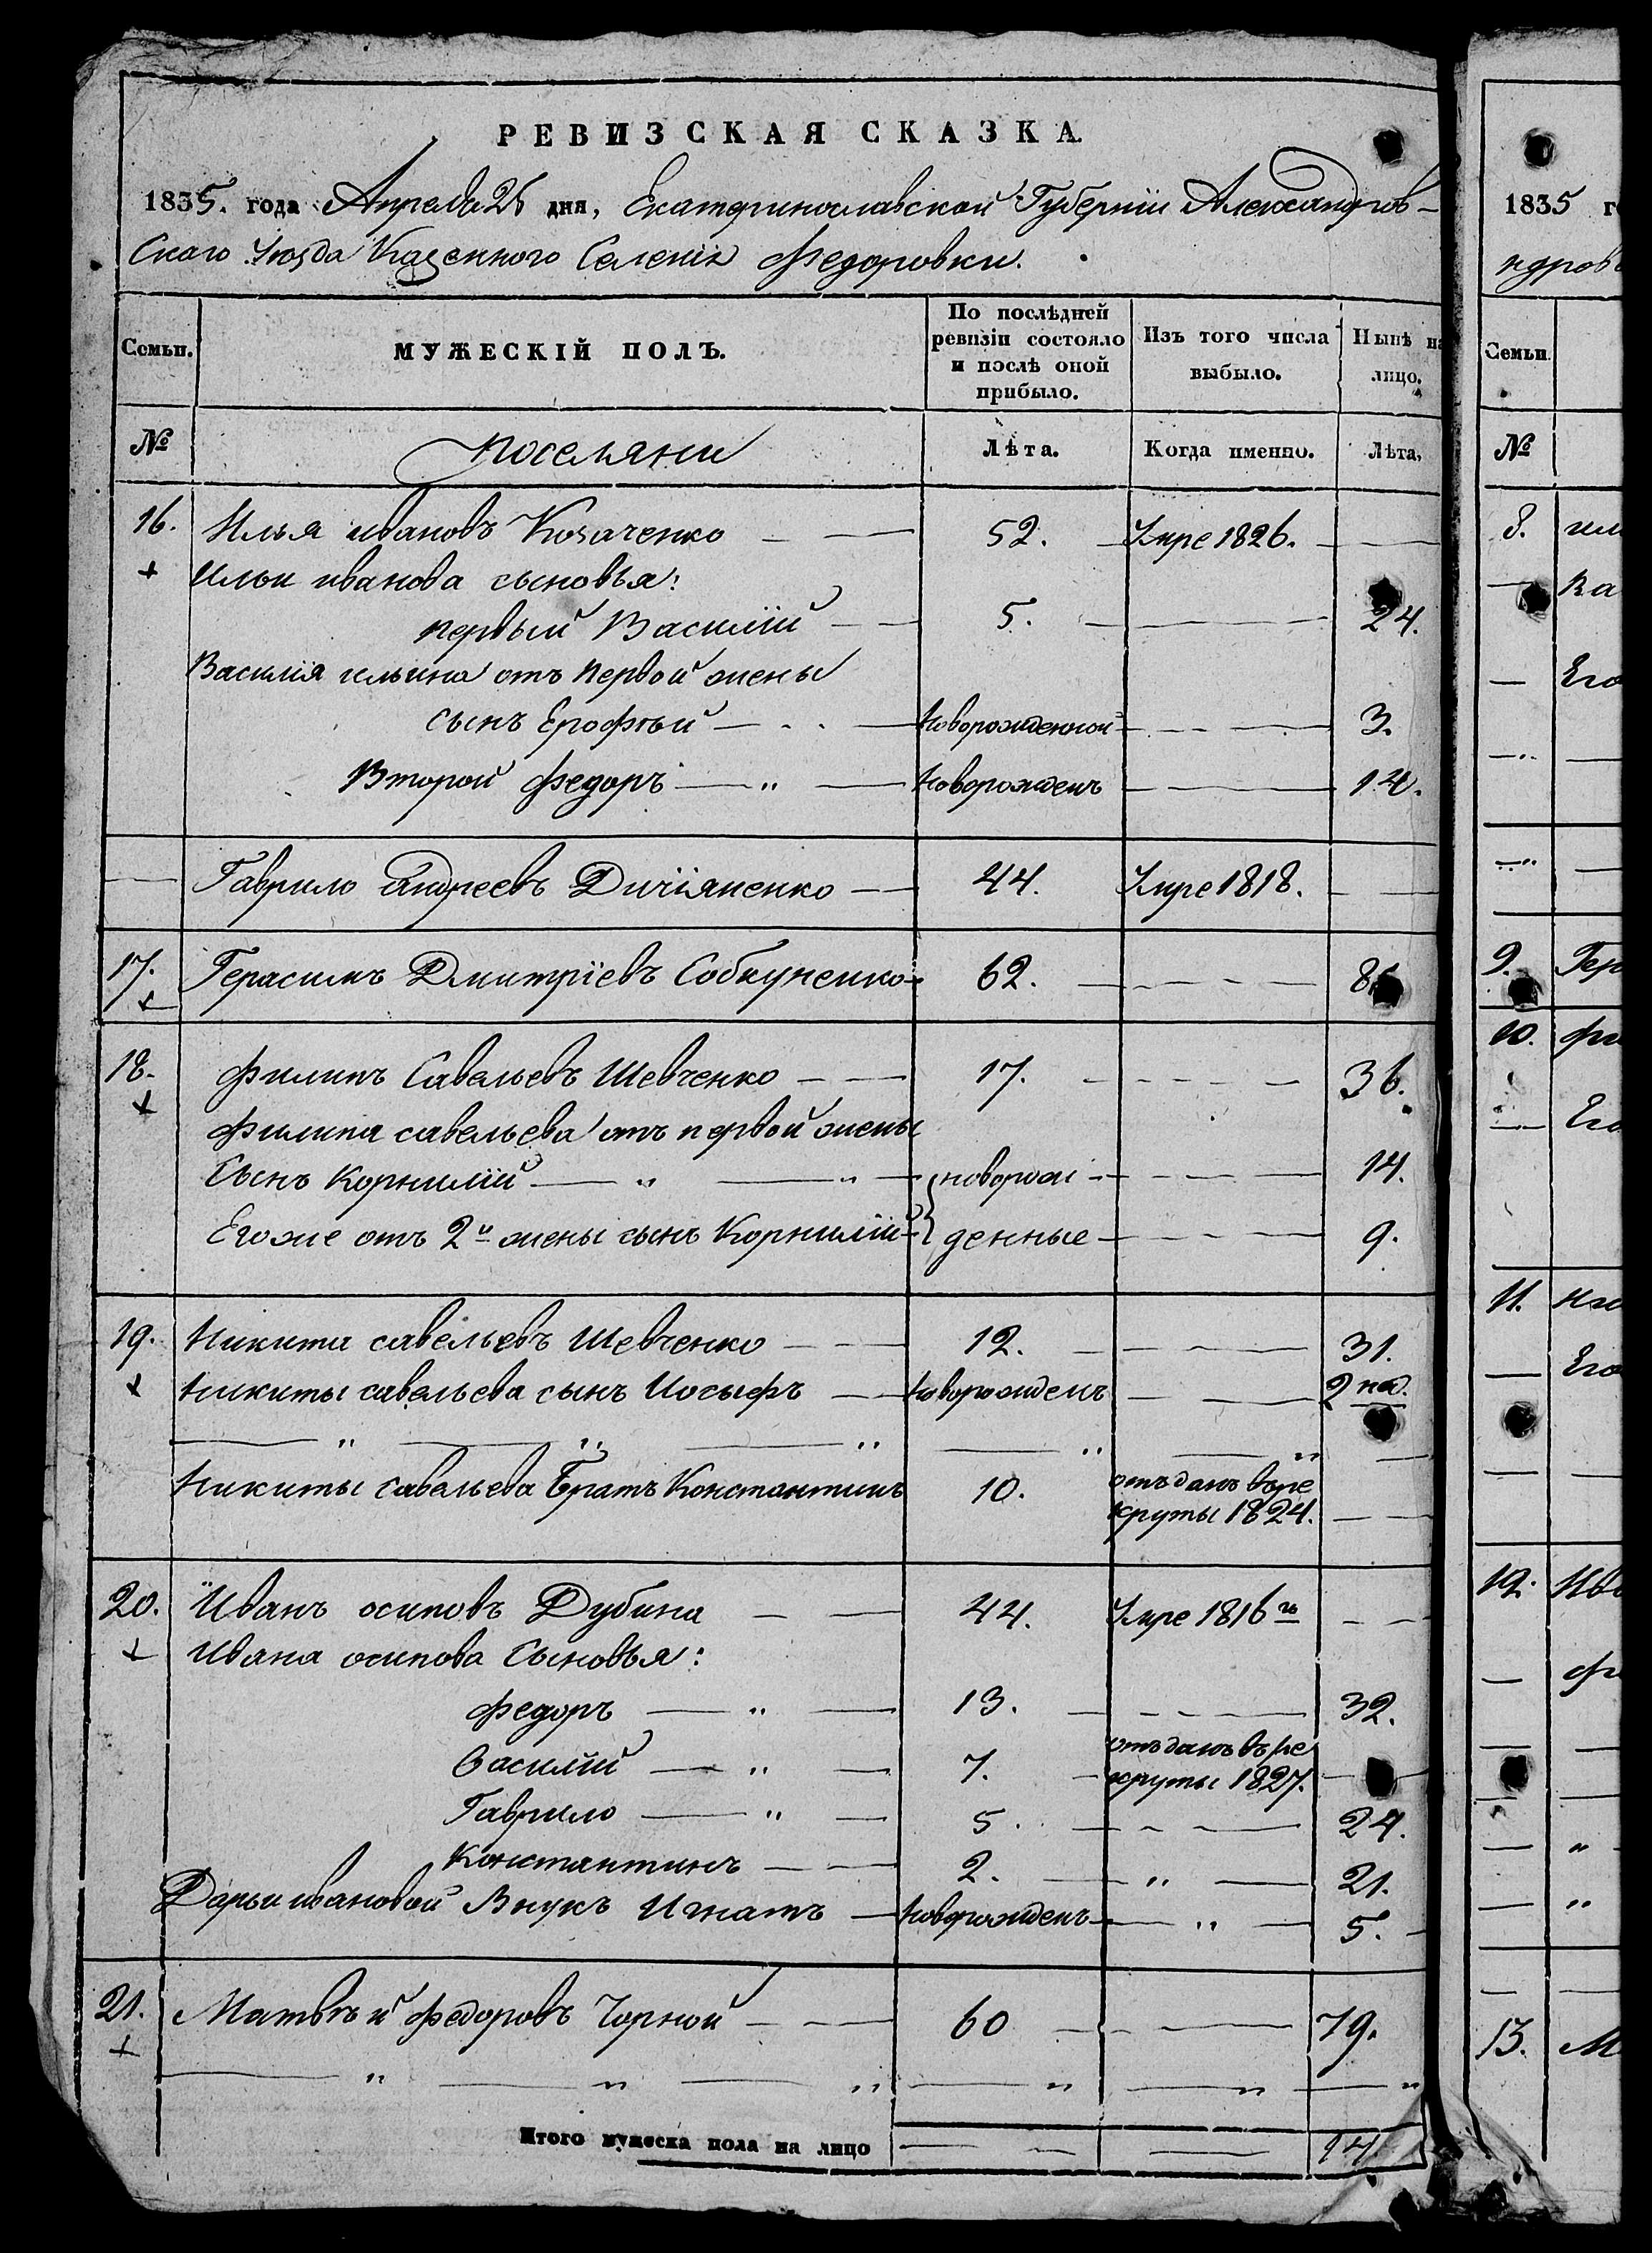 РЕВИЗСКАЯ СКАЗКА.
1835. года Апреля 25 дня, Екатеринославской Губернїи Александров-
Скаго Уюзда Казенного Селенїя Федоровки.
Семьи. МУЖЕСКІЙ ПОЛЪ. По послѣдней ревизіи состояло и послѣ оной прибыло. Изъ того числа выбыло. Нынѣ на лицо.
№ поселяни Лѣта. Когда именно. Лѣта.
16. Илья ивановъ Козаченко 52. Умре 1826.
Ильи иванова сыновья:
первый Василїй 5. 24.
Василїя ильина отъ первой жены
сынъ Ерофѣй Новорожденной 3.
Второй Федоръ Новорожденъ 14.
Гаврило Андреевъ 44. Умре 1818.
17. Герасимъ Дмитрїевъ Собкуненко 62.
18. Филипъ Савельевъ Шевченко 17. 36.
Филипа савельева отъ первой жены
Сынъ Корнилїй новорож 14.
Егоже отъ 2й жены сынъ Корнилїй денные 9.
19. Никита савельевъ Шевченко 12. 31.
Никиты савельева сынъ Иосыфъ Новорожденъ 2 нед.
Никиты Савельева Братъ Константинъ 10. отъданъ въ ре
круты 1824.
20. Иванъ осиповъ Дубина 44. Умре 1816го
Ивана осипова Сыновья:
Федоръ 13. 32.
Василїй 7. отъданъ въ ре
круты 1827.
Гаврило 5. 24.
Константинъ 2. 21.
Дарьи ивановой Внукъ Игнатъ Новорожденъ 5.
21. Матвѣй Федоровъ Чорной 60 79.
Итого мужеска пола на лицо 14
1835
ндров
Семьи.
№
8.
9. Гер
10.
Его
11.
Его
12. Ив
13. М